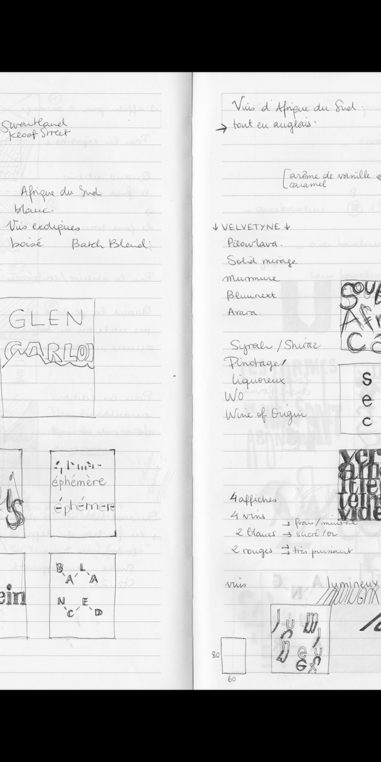 Swartland
Kloof Street
Afrique du Sud
blanc.
Vins exotiques
boisé Batch Blend.
GLEN
CARLOU
éphémère
éphémère
éphémère
B L A
A
N C E D
ein
Vins d'Afrique du Sud.
→ tout en anglais.
[arôme de vanille
caramel
↓ VELVETYNE ↓
Pilowlava.
Solid mirage
Murmure
Bluunext
Avara
Syrah / Shiraz
Pinotage/
liquoreux
WO
Wine of Origin
SOU
Afr
C
S
e
c
vers
vide
4 affiches
4 vins → frais/minéral
2 blancs → sucré/or
2 rouges → très puissant
vins lumineux
lumineux
80
60